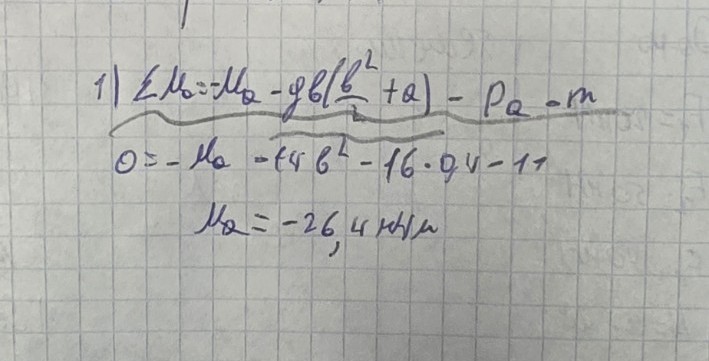 1) ΣMₐ = -Mₐ - qb(b²/2 + a) - Pa - m
0 = - Mₐ - 14 b² - 16 · 0,4 - 11
Mₐ = -26,4 кНм